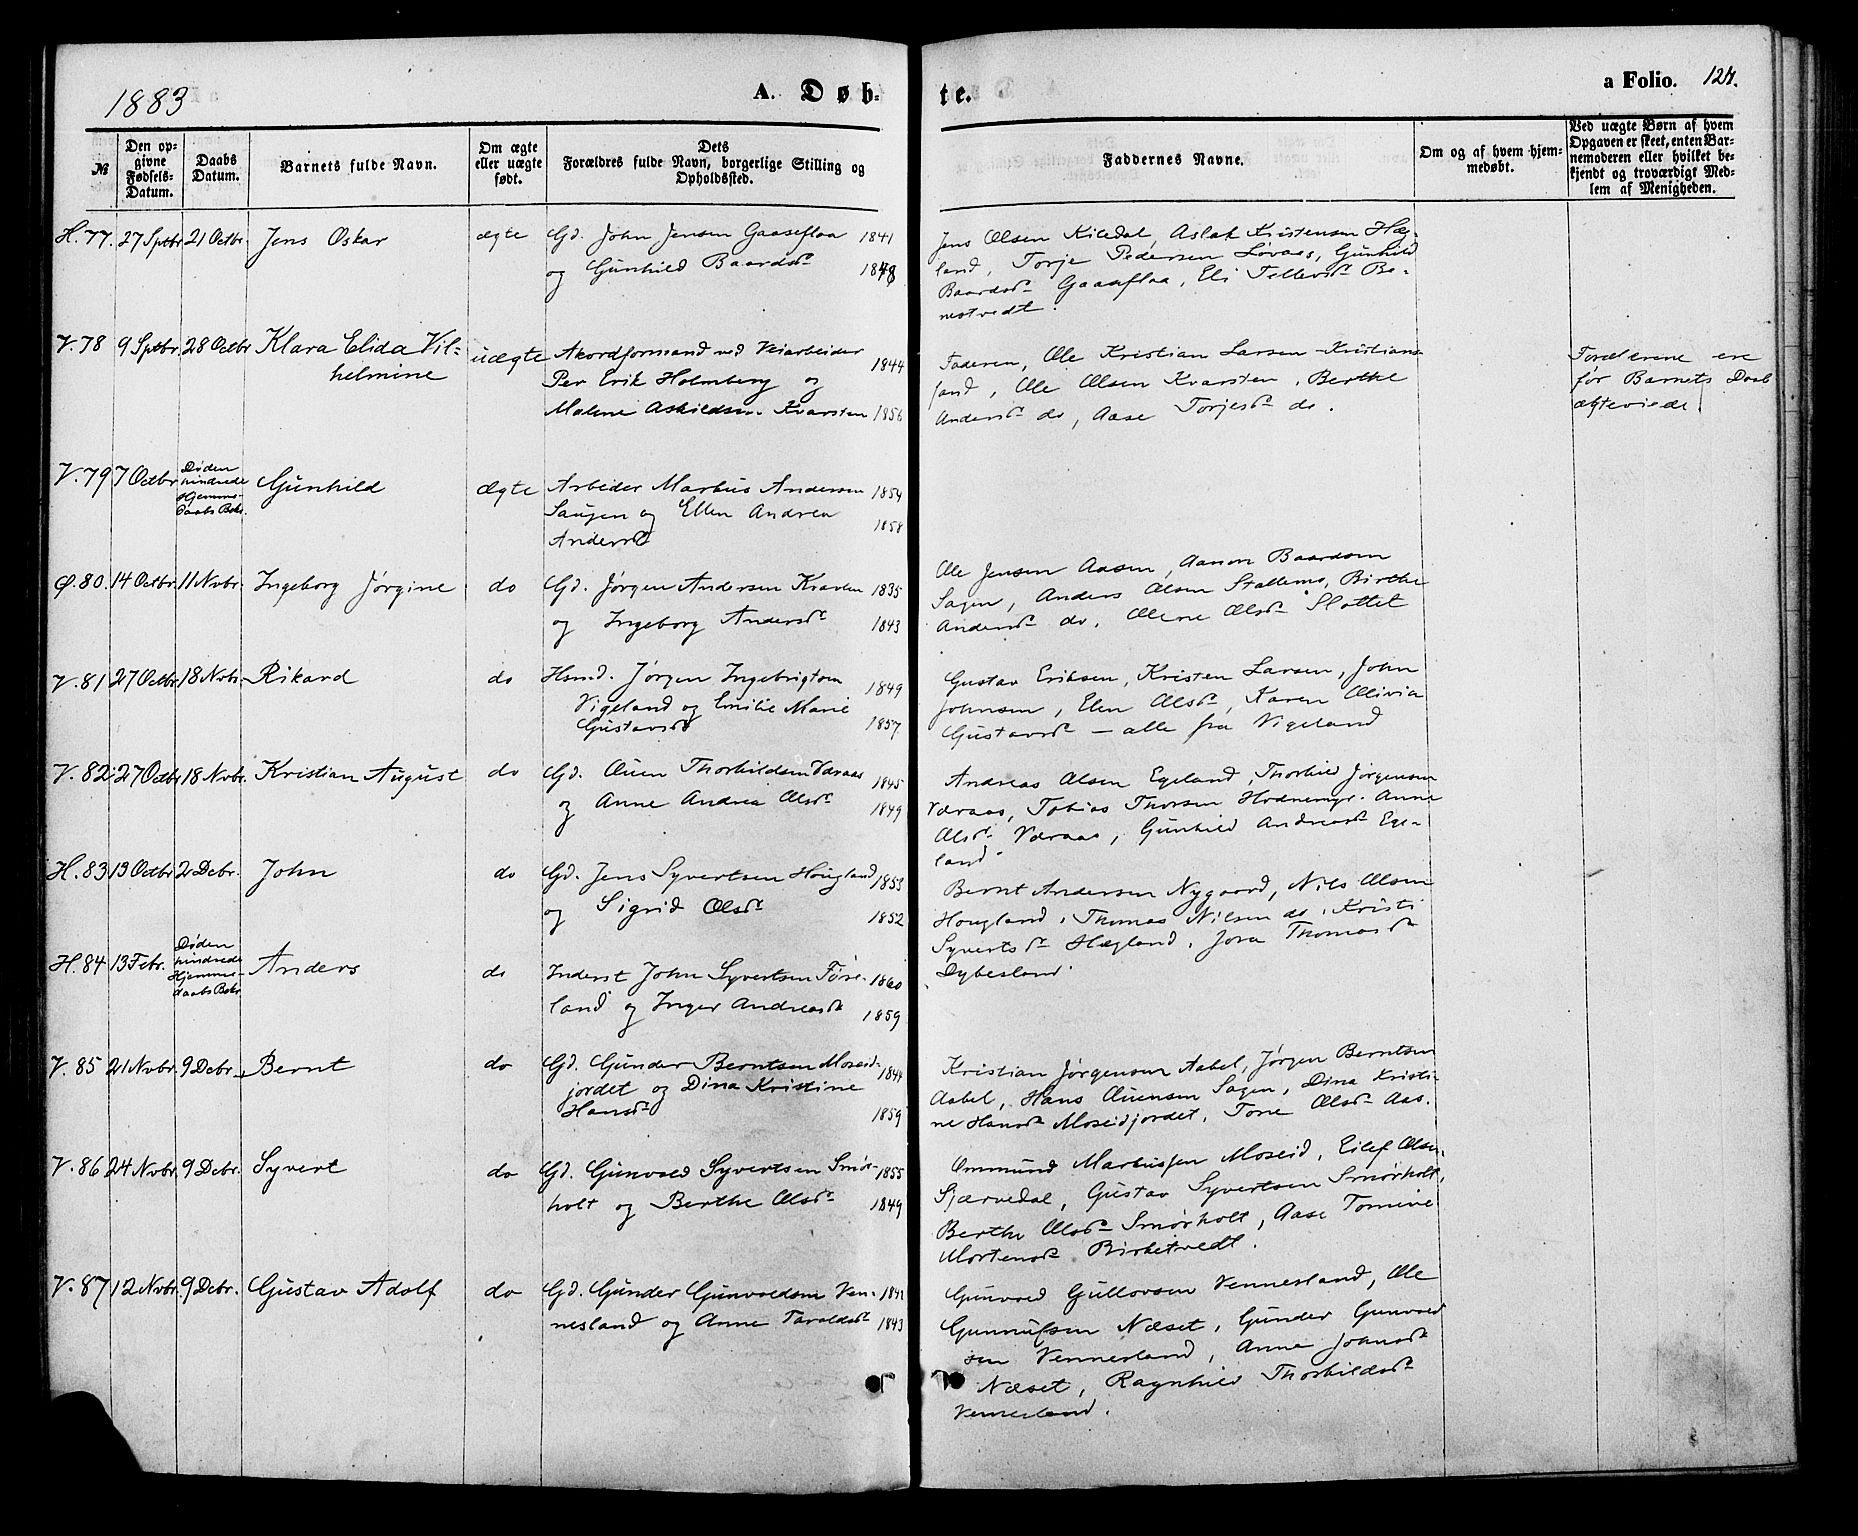 1883
A. Døb-
te.
a Folio. 124.
№
Den op-
givne
Fødsels-
Datum.
Daabs
Datum.
Barnets fulde Navn.
Om ægte
eller uægte
født.
Dets
Forældres fulde Navn, borgerlige Stilling og
Opholdssted.
Faddernes Navne.
Om og af hvem hjem-
medøbt.
Ved uægte Børn af hvem
Opgaven er skeet, enten Bar-
nemoderen eller hvilket be-
kjendt og troværdigt Med-
lem af Menigheden.
H. 77. 27 Sptbr 21 Octbr. Jens Oskar ægte Gd. John Jensen Gaaseflaa 1841
og Gunhild Baardsd. 1848
Jens Olsen Kiledal, Aslak Kristensen Hæg-
land, Torje Pedersen Løvaas, Gunhild
Baardsd. Gaaseflaa, Eli Tellevsd. Bo-
nestvedt.
V. 78 9 Sptbr. 28 Octbr Klara Elida Vil-
helmine
uægte Akordformand ved Veiarbeider 1844
Per Erik Holmberg og
Malene Askildsen Kvarsten 1856
Faderen, Ole Kristian Larsen Kristians-
sand, Ole Olsen Kvarsten, Berthe
Andersd. do, Aase Torjesd. do.
Forældrene ere
før Barnets Daab
ægteviede.
V. 79 7 Octbr Døden
hindrede
Hjemme-
daabs Bekr.
Gunhild ægte Arbeider Markus Andersen 1854
Saugen og Ellen Andrea 1858
Andersd.
Ø. 80. 14 Octbr. 11 Novbr. Ingeborg Jørgine do Gd. Jørgen Andersen Kvarsten 1835
og Ingeborg Andersd. 1843
Ole Jensen Aasen, Aanon Baardsen
Sagen, Anders Olsen Stallemo, Birthe
Andersd. do, Olene Olsd. Slottet
V. 81 27 Octbr. 18 Nvbr. Rikard do Husmd. Jørgen Ingebrigtsen 1849
Vigeland og Emilie Marie
Gustavsd. 1857.
Gustav Eriksen, Kristen Larsen, John
Johnsen, Elen Olsd., Karen Olivia
Gustavsd. – alle fra Vigeland
V. 82 27 Octbr 18 Nvbr. Kristian August do Gd. Ouen Thorkildsen Væraas 1845
og Anne Andrea Olsd. 1849
Andreas Olsen Egeland, Thorkild Jørgensen
Væraas, Tobias Thorsen Hodnemyr. Anne
Olsd. Væraas, Gunhild Andreasd. Ege-
land.
H. 83 13 Octbr 2 Debr. John do Gd. Jens Syvertsen Hougland 1853
og Sigrid Olsd. 1852
Bernt Andersen Nygaard, Nils Olsen
Hougland, Thomas Nilsen do, Kristi
Syvertsd. Hægland, Jora Thomasd.
Dybesland.
H. 84 13 Febr. Døden
hindrede
Hjemme-
daabs Bekr
Anders do Inderst John Syvertsen Føre- 1860
land og Inger Andreasd. 1859
V. 85 21 Nvbr. 9 Debr. Bernt do Gd. Gunder Berntsen Moseid- 1844
jordet og Dina Kristine
Hansd. 1859
Kristian Jørgensen Aabel, Jørgen Berntsen
Aabel, Hans Ouensen Sagen, Dina Kristi-
ne Hansd. Moseidjordet, Tone Olsd. Aas.
V. 86 24 Nvbr. 9 Debr. Syvert do Gd. Gunvald Syvertsen Smør- 1855
holt og Berthe Olsd. 1849
Ommund Markussen Moseid, Eilef Olsen
Skjærvedal, Gustav Syvertsen Smørholt,
Berthe Olsd. Smørholt, Aase Tomine
Mortensd. Birketvedt.
V. 87 12 Nvbr. 9 Debr. Gustav Adolf do Gd. Gunder Gunvaldsen Ven- 1841
nesland og Anne Taraldsd. 1843
Gunvald Gullovsen Vennesland, Ole
Gunnufsen Næset, Gunder Gunvald
sen Vennesland, Anne Johnsd.
Næset, Ragnhild Thorkildsd.
Vennesland.